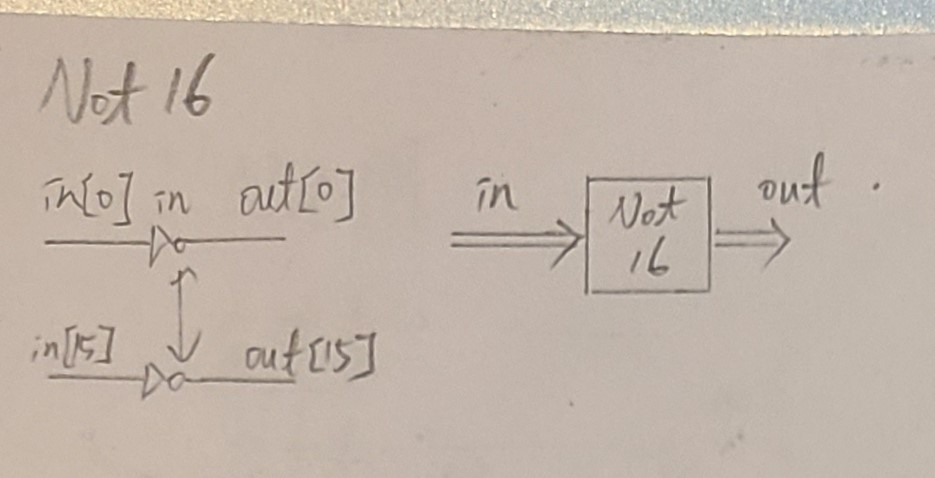 Not 16
in[0] in out[0]
in[15] out[15]
in Not 16 out